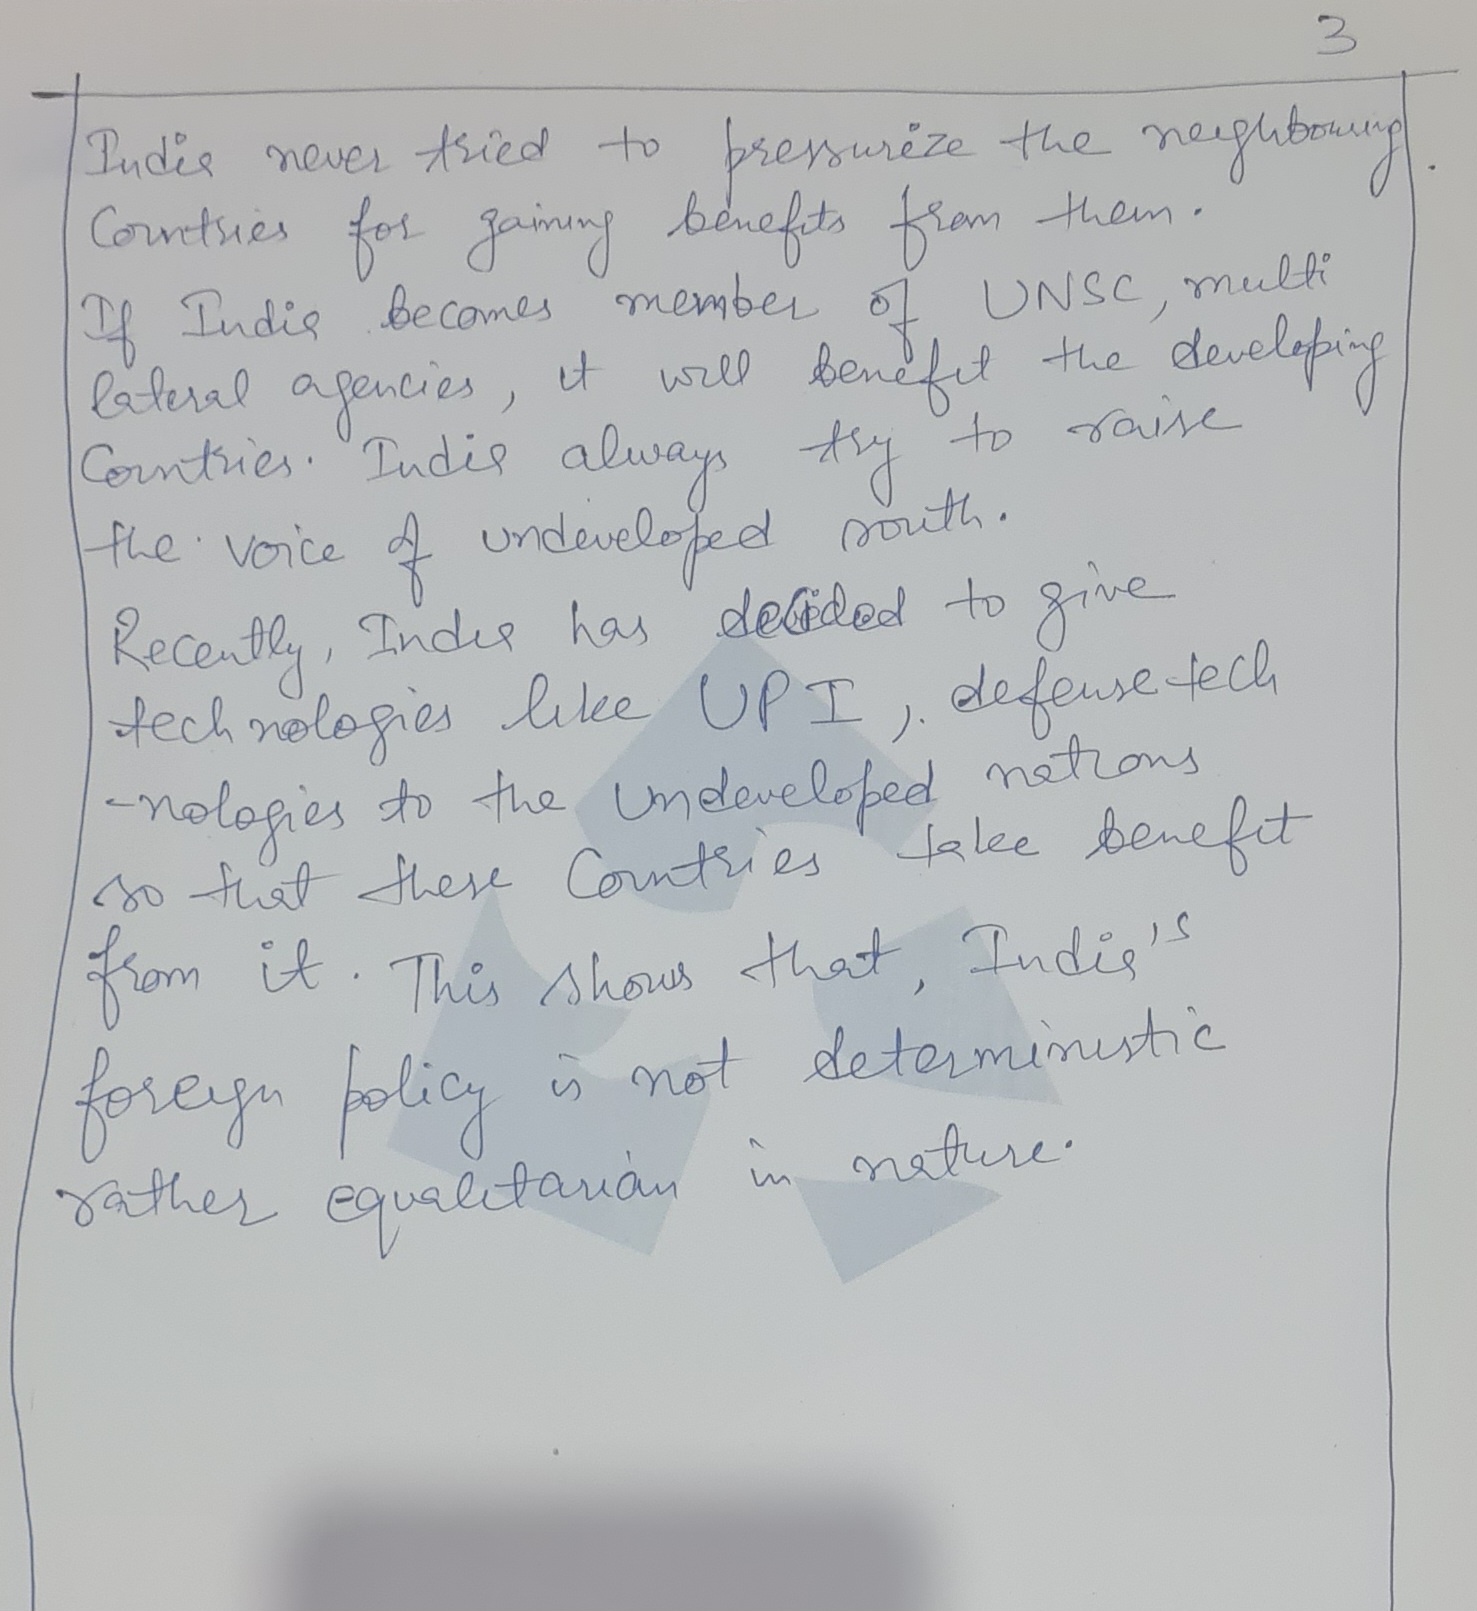 3
India never tried to pressurize the neighbouring
Countries for gaining benefits from them.
If India becomes member of UNSC, multi
lateral agencies, it will benefit the developing
Countries. India always try to raise
the voice of undeveloped south.
Recently, India has decided to give
technologies like UPI, defense tech
-nologies to the undeveloped nations
so that these Countries take benefit
from it. This shows that, India's
foreign policy is not deterministic
rather equalitarian in nature.